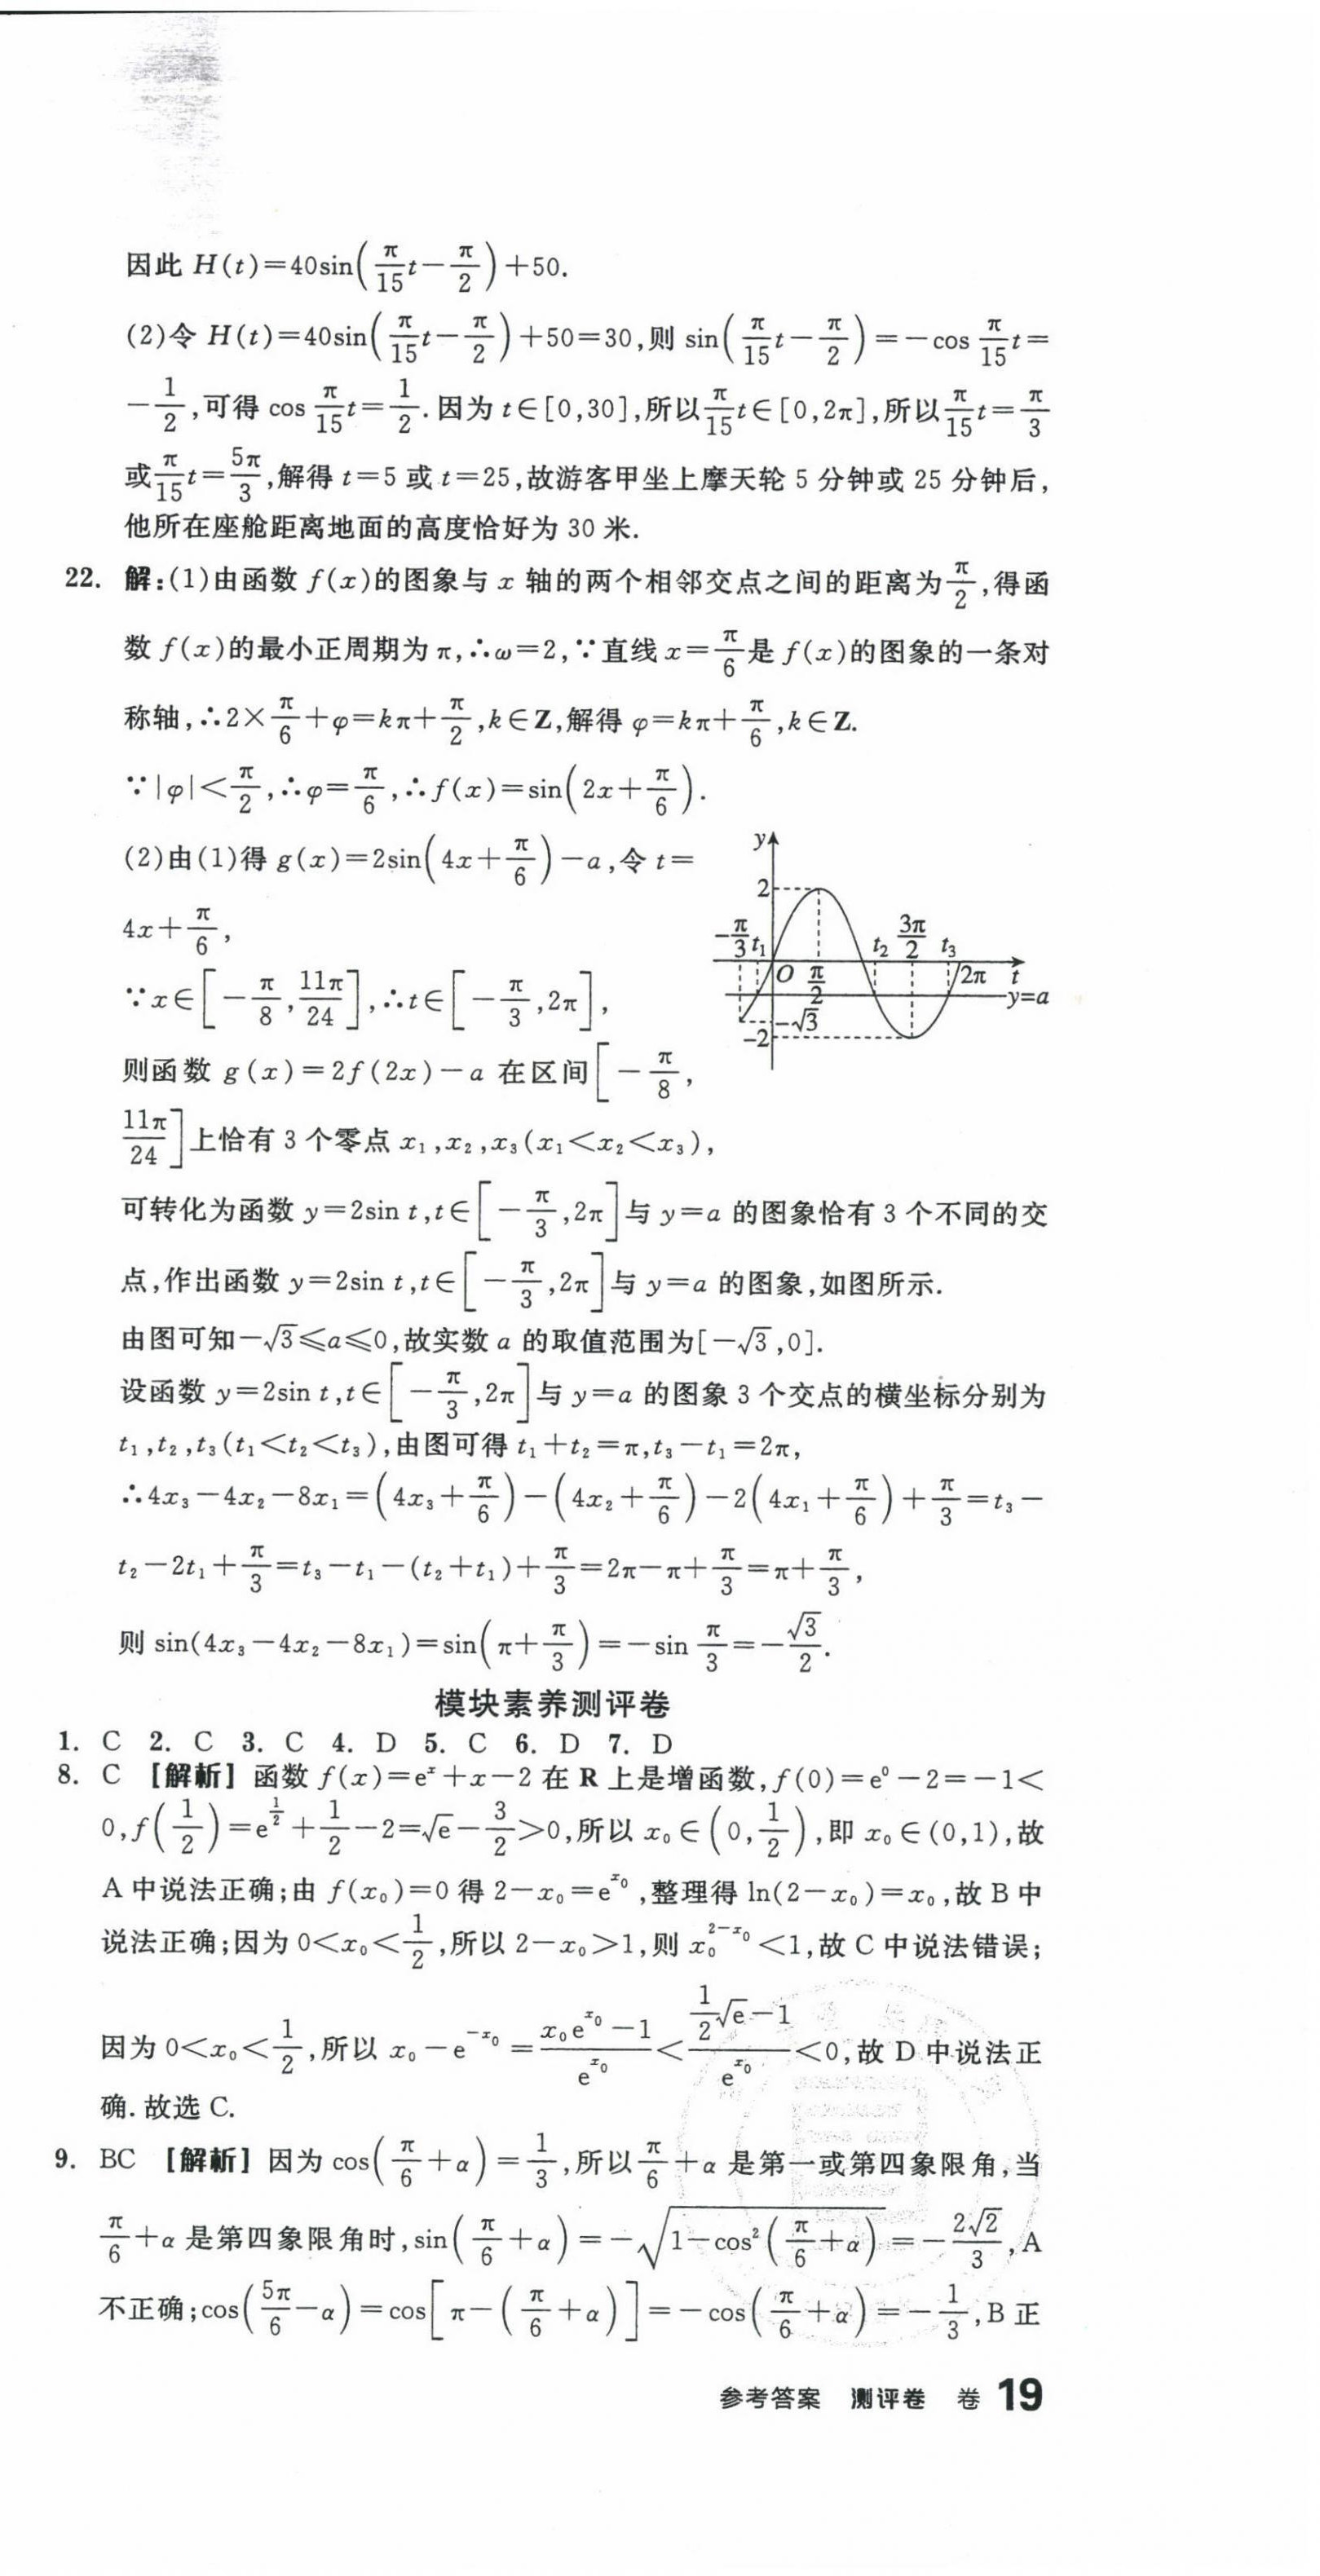 因此 H(t)=40sin(π/15 t-π/2)+50.
(2)令 H(t)=40sin(π/15 t-π/2)+50=30,则 sin(π/15 t-π/2)=-cos π/15 t=
-1/2,可得 cos π/15 t=1/2.因为 t∈[0,30],所以 π/15 t∈[0,2π],所以 π/15 t=π/3
或 π/15 t=5π/3,解得 t=5 或 t=25,故游客甲坐上摩天轮 5 分钟或 25 分钟后,
他所在座舱距离地面的高度恰好为 30 米.
22. 解:(1)由函数 f(x)的图象与 x 轴的两个相邻交点之间的距离为 π/2,得函
数 f(x)的最小正周期为 π,∴ω=2,∵直线 x=π/6 是 f(x)的图象的一条对
称轴,∴2×π/6+φ=kπ+π/2,k∈Z,解得 φ=kπ+π/6,k∈Z.
∵|φ|<π/2,∴φ=π/6,∴f(x)=sin(2x+π/6).
(2)由(1)得 g(x)=2sin(4x+π/6)-a,令 t=
4x+π/6,
∵x∈[-π/8,11π/24],∴t∈[-π/3,2π],
则函数 g(x)=2f(2x)-a 在区间[-π/8,
11π/24]上恰有 3 个零点 x₁,x₂,x₃(x₁<x₂<x₃),
y
2
-π/3 t₁ t₂ 3π/2 t₃
O π/2 2π t
y=a
-√3
-2
可转化为函数 y=2sin t,t∈[-π/3,2π]与 y=a 的图象恰有 3 个不同的交
点,作出函数 y=2sin t,t∈[-π/3,2π]与 y=a 的图象,如图所示.
由图可知-√3≤a≤0,故实数 a 的取值范围为[-√3,0].
设函数 y=2sin t,t∈[-π/3,2π]与 y=a 的图象 3 个交点的横坐标分别为
t₁,t₂,t₃(t₁<t₂<t₃),由图可得 t₁+t₂=π,t₃-t₁=2π,
∴4x₃-4x₂-8x₁=(4x₃+π/6)-(4x₂+π/6)-2(4x₁+π/6)+π/3=t₃-
t₂-2t₁+π/3=t₃-t₁-(t₂+t₁)+π/3=2π-π+π/3=π+π/3,
则 sin(4x₃-4x₂-8x₁)=sin(π+π/3)=-sin π/3=-√3/2.
模块素养测评卷
1. C 2. C 3. C 4. D 5. C 6. D 7. D
8. C [解析] 函数 f(x)=eˣ+x-2 在 R 上是增函数,f(0)=e⁰-2=-1<
0,f(1/2)=e^(1/2)+1/2-2=√e-3/2>0,所以 x₀∈(0,1/2),即 x₀∈(0,1),故
A 中说法正确;由 f(x₀)=0 得 2-x₀=e^(x₀),整理得 ln(2-x₀)=x₀,故 B 中
说法正确;因为 0<x₀<1/2,所以 2-x₀>1,则 x₀^(2-x₀)<1,故 C 中说法错误;
因为 0<x₀<1/2,所以 x₀-e^(-x₀)=(x₀e^(x₀)-1)/e^(x₀)<(1/2√e-1)/e^(x₀)<0,故 D 中说法正
确.故选 C.
9. BC [解析] 因为 cos(π/6+α)=1/3,所以 π/6+α 是第一或第四象限角,当
π/6+α 是第四象限角时,sin(π/6+α)=-√(1-cos²(π/6+α))=-2√2/3,A
不正确;cos(5π/6-α)=cos[π-(π/6+α)]=-cos(π/6+α)=-1/3,B 正
参考答案 测评卷 卷 19